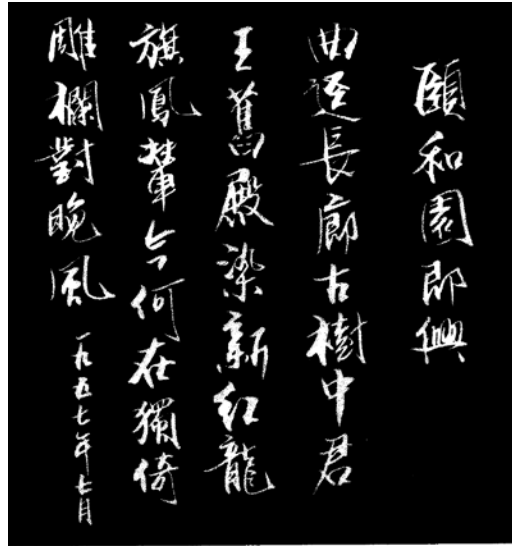 頤和園即興
曲逕長廊古樹中君
王舊殿染新紅龍
旗鳳輦今何在獨倚
雕欄對晚風
一九五七年七月